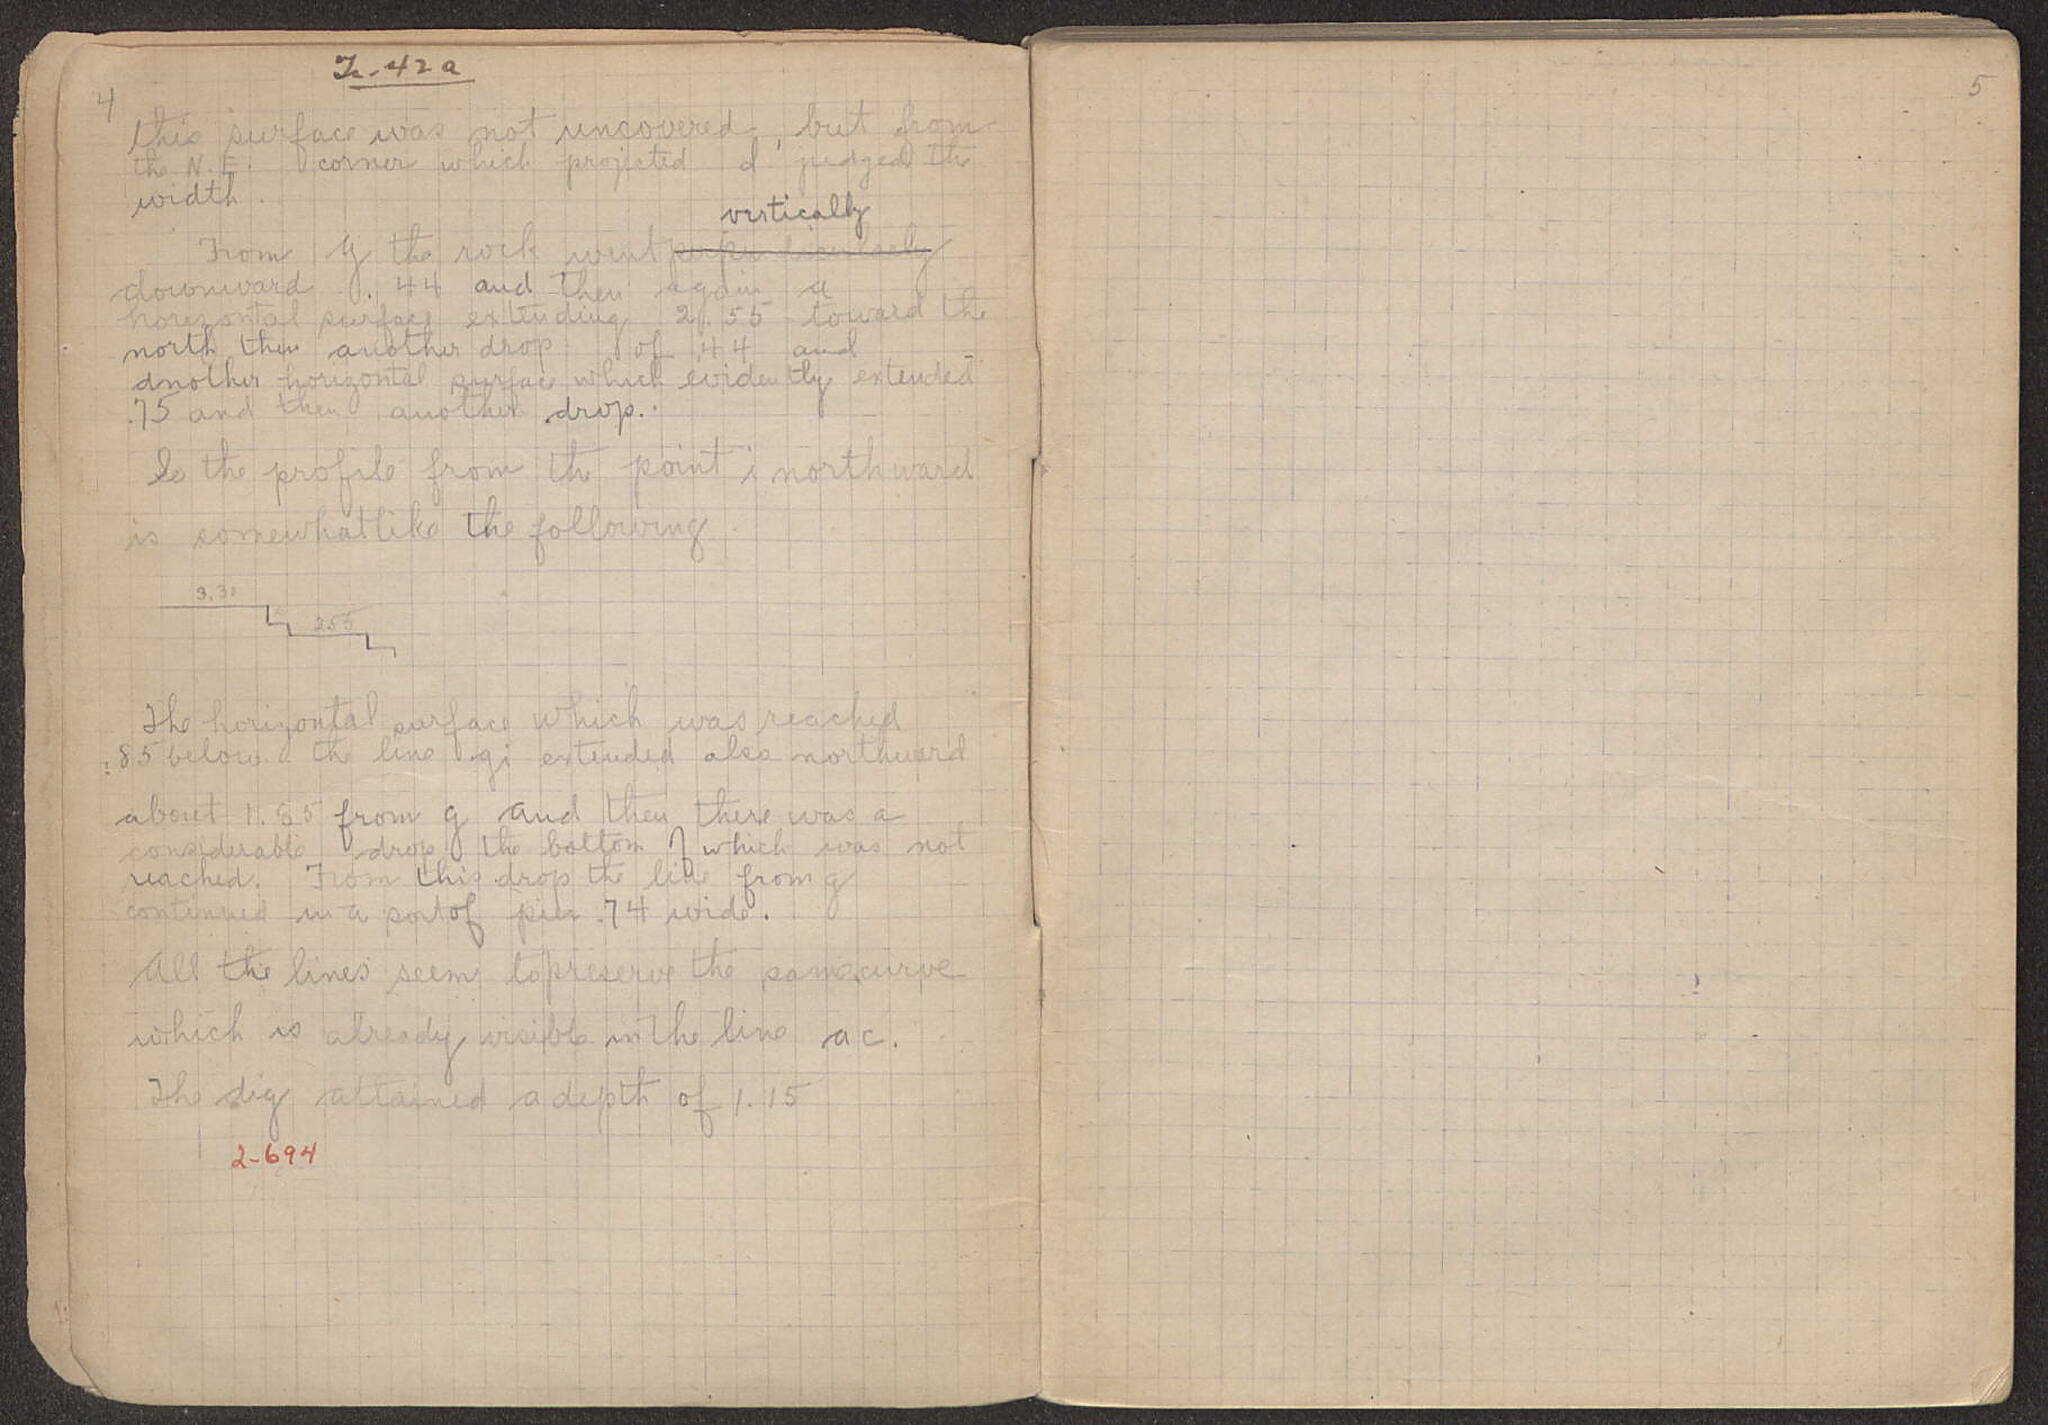 Tr. 42 a
4
this surface was not uncovered, but from
the N.E. corner which projected I judged the
width.
vertically
From g the rock went perpendicularly
downward .44 and then again a
horizontal surface extending 2.55 toward the
north then another drop of .44 and
another horizontal surface which evidently extended
.75 and then another drop.
So the profile from the point i northward
is somewhat like the following
3.30
2.55
The horizontal surface which was reached
.85 below the line gi extended also northward
about 1.85 from g and then there was a
considerable drop the bottom of which was not
reached. From this drop the line from g
continued in a sort of pier .74 wide.
All the lines seem to preserve the same curve
which is already visible in the line ac.
The dig attained a depth of 1.15
2-694
5